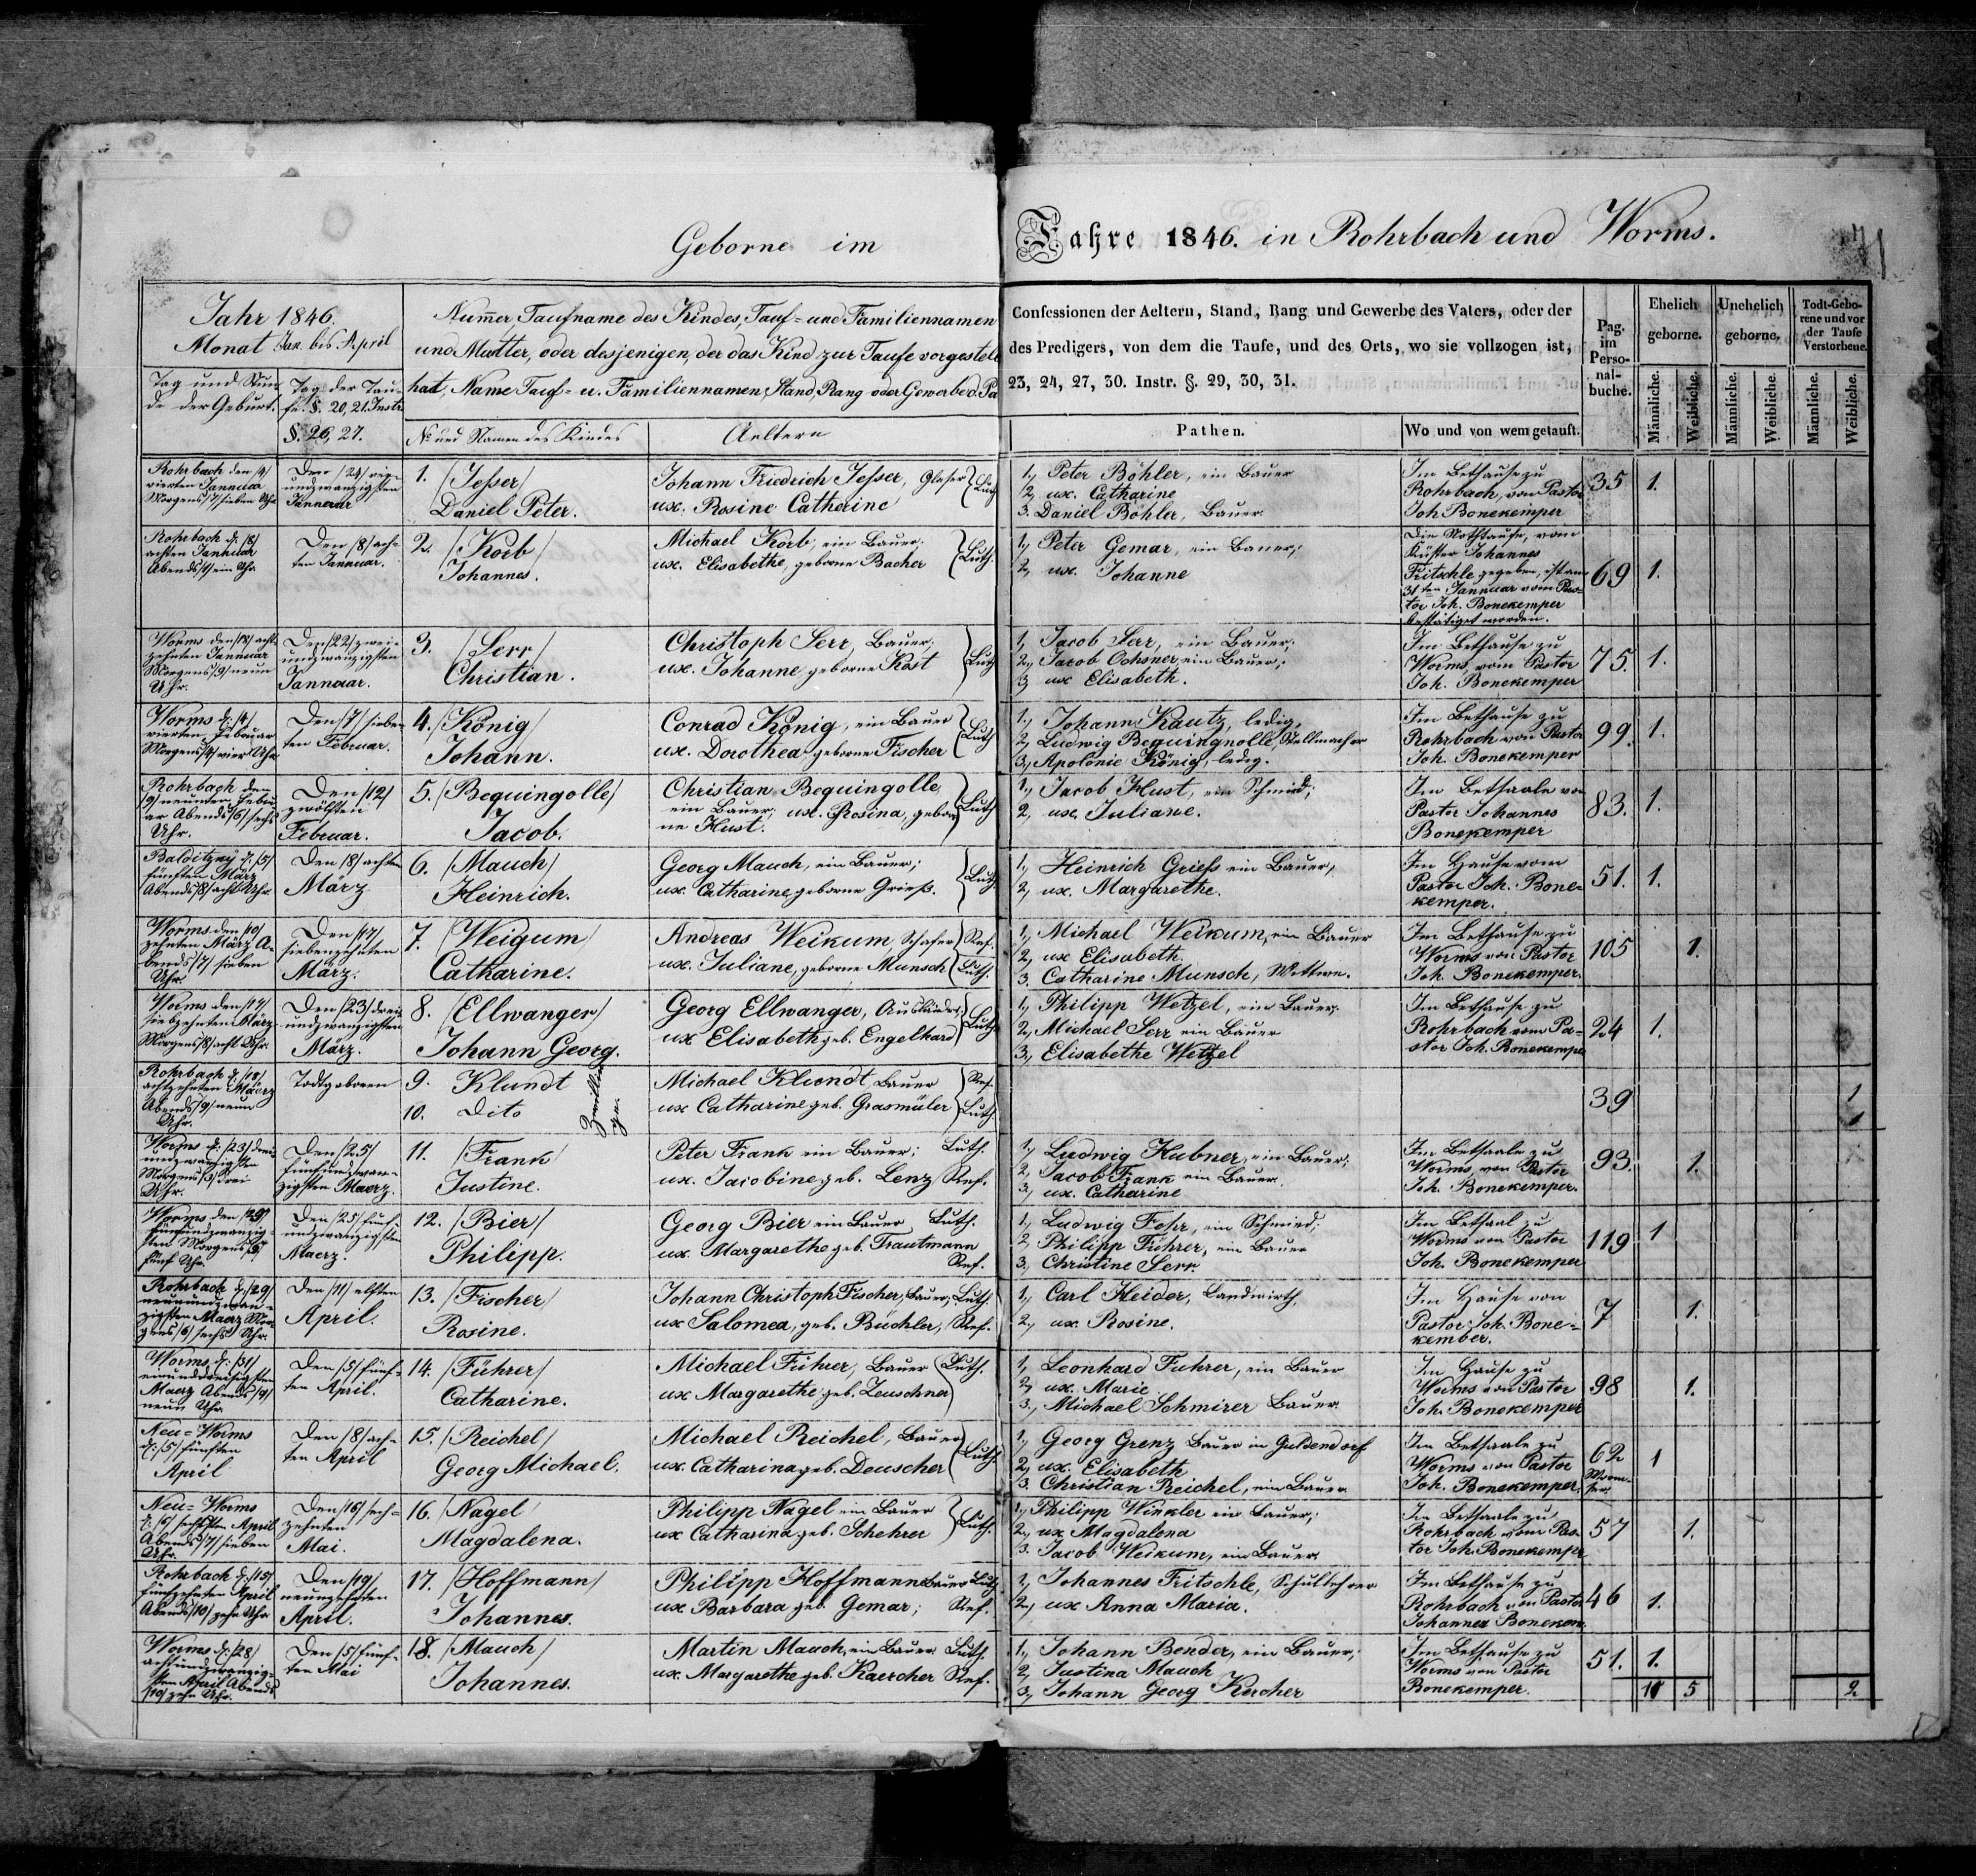 Geborne im
Jahre 1846. in Rohrbach und Worms.
71
Jahr 1846.
Monat Jan. bis April
Tag und Stun-
de der Geburt.
Tag der Tau-
fe. §. 20, 21. Instr.
§. 26, 27.
Num̅er, Taufname des Kindes, Tauf- und Familiennamen
und Mutter, oder desjenigen, der das Kind zur Taufe vorgestel
hat, Name Tauf- u. Familiennamen, Stand, Rang oder Gewerbe d. Pa
No und Namen des Kindes
Aeltern
Confessionen der Aeltern, Stand, Rang und Gewerbe des Vaters, oder der
des Predigers, von dem die Taufe, und des Orts, wo sie vollzogen ist,
23, 24, 27, 30. Instr. §. 29, 30, 31.
Pathen.
Wo und von wem getauft.
Pag.
im
Perso-
nal-
buche.
Ehelich
geborne.
Unehelich
geborne.
Todt-Gebo-
rene und vor
der Taufe
Verstorbene.
Männliche.
Weibliche.
Männliche.
Weibliche.
Männliche.
Weibliche.
Rohrbach den /4/
vierten Jannuar
Morgens /7/ sieben Uhr
Den /24/ vier-
undzwanzigsten
Jannuar
1. /Jesser/
Daniel Peter.
Johann Friedrich Jesser, Glaser
ux. Rosine Catharine
Luth
1, Peter Böhler, ein Bauer
2, ux. Catharine
3. Daniel Böhler, Bauer.
Im Bethause zu
Rohrbach, von Pastor
Joh Bonekemper
35
1.
Rohrbach d: /8/
achten Jannuar
Abends /1/ ein Uhr
Den /8/ ach-
ten Jannuar.
2. /Korb/
Johannes.
Michael Korb, ein Bauer.
ux. Elisabethe, geborne Bacher
Luth.
1, Peter Gemar, ein Bauer;
2, ux. Johanne
Die Nothtaufe, vom
Küster Johannes
Fritschle gegeben, ist am
31ten Jannuar vom Pas-
tor Joh. Bonekemper
bestätiget worden.
69
1.
Worms den /18/ acht-
zehnten Jannuar
Morgens /9/ neun
Uhr.
Den /22/ zwei-
undzwanzigsten
Jannuar.
3. /Serr/
Christian.
Christoph Serr, Bauer,
ux. Johanne, geborne Kost
Luth
1, Jacob Serr, ein Bauer;
2, Jacob Ochsner, ein Bauer;
3, ux Elisabeth.
Im Bethause zu
Worms, vom Pastor
Joh. Bonekemper
75.
1.
Worms d: /4/
vierten Februar
Morgens /4/ vier Uhr
Den /7/ sieben-
ten Februar.
4. /König/
Johann.
Conrad König, ein Bauer
ux. Dorothea, geborne Fischer
Luth
1, Johann Kautz, ledig,
2, Ludwig Bequingnolle, Stellmacher
3, Apolonie König, ledig.
Im Bethause zu
Rohrbach von Pastor
Joh. Bonekemper
99.
1.
Rohrbach den
/9/ neunten Febru-
ar Abends /6/ sechs
Uhr.
Den /12/
zwölften
Februar.
5. /Bequingolle/
Jacob.
Christian Bequingolle
ein Bauer; ux. Rosina, gebor-
ne Hust.
Luth
1, Jacob Hust, ein Schmied;
2, ux. Juliane.
Im Betsaale von
Pastor Johannes
Bonekemper
83.
1.
Balditzny d: /5/
fünften März
Abends /8/ acht Uhr
Den /8/ achten
März
6. /Mauch/
Heinrich.
Georg Mauch, ein Bauer;
ux. Catharine, geborne Grieß.
Luth.
1, Heinrich Griehs ein Bauer,
2, ux. Margarethe.
Im Hause vom
Pastor Joh. Bone-
kemper.
51.
1.
Worms den /10/
zehnten März A-
bends /7/ sieben
Uhr.
Den /17/
siebenzehnten
März.
7. /Weigum/
Catharine.
Andreas Weikum, Schäfer
ux. Juliane, geborne Munsch
Ref.
Luth.
1, Michael Weikum, ein Bauer
2, ux Elisabeth.
3. Catharine Munsch, Wittwe.
Im Bethause zu
Worms von Pastor
Joh. Bonekemper.
105
1.
Worms den /17/
siebzehnten März
Morgens /8/ acht Uhr.
Den /23/ drei-
undzwanzigsten
März.
8. /Ellwanger/
Johann Georg.
Georg Ellwanger, Ausländer,
ux Elisabeth geb. Engelhard
Luth
1, Philipp Wetzel, ein Bauer.
2, Michael Serr ein Bauer
3, Elisabethe Wetzel
Im Bethause zu
Rohrbach vom Pa-
stor Joh. Bonekemper
24
1.
Rohrbach d: /18/
achtzehnten Maerz
Abends /9/ neun
Uhr.
Todtgeboren
9. Klundt
10. Dito
Zwillin
ge.
Michael Klundt, Bauer
ux Catharine geb. Grasmüler
Ref.
Luth.
39
1
1
Worms d: /23/ drei-
undzwanzigsten
Morgens /3/ drei
Uhr.
Den /25/
fünfundzwan-
zigsten Maerz.
11. /Frank/
Justine.
Peter Frank ein Bauer; Luth.
ux. Jacobine geb. Lenz Ref.
1, Ludwig Hubner, ein Bauer;
2, Jacob Frank ein Bauer.
3, ux. Catharine
Im Betsaale zu
Worms, von Pastor
Joh. Bonekemper.
93.
1.
Worms den /25/
fünfundzwanzig-
sten Morgens /5/
fünf Uhr.
Den /25/ fünf-
undzwanzigsten
Maerz.
12. /Bier/
Philipp.
Georg Bier ein Bauer, Luth.
ux. Margarethe geb. Trautmann
Ref.
1, Ludwig Fohr, ein Schmied;
2, Philipp Führer, ein Bauer
3, Christine Serr.
Im Betsaal zu
Worms von Pastor
Joh. Bonekemper
119
1
Rohrbach d: /29/
neunundzwan-
zigsten Maerz Mor-
gens /6/ sechs Uhr.
Den /11/ elften
April.
13. /Fischer/
Rosine.
Johann Christoph Fischer, Bauer; Luth.
ux Salomea, geb. Büchler, Ref.
1, Carl Heider, Landwirth,
2, ux. Rosine.
Im Hause von
Pastor Joh. Bone-
kember.
7
1.
Worms d: /31/
einunddreißigsten
Maerz Abends /9/
neun Uhr
Den /5/ fünf-
ten April.
14. /Führer/
Catharine.
Michael Führer, Bauer Luth.
ux Margarethe geb. Zeuschner
1, Leonhard Fuhrer, ein Bauer
2, ux. Marie
3, Michael Schmirer Bauer
Im Hause zu
Worms von Pastor
Joh. Bonekemper
98
1.
Neu=Worms
d: /5/ fünften
April
Den /8/ ach-
ten April
15. /Reichel/
Georg Michael.
Michael Reichel, Bauer
ux. Catharina geb. Deuscher
Luth.
1, Georg Grenz Bauer in Guldendorf
2, ux. Elisabeth
3. Christian Reichel, ein Bauer
Im Betsaale zu
Worms von Pastor
Joh. Bonekemper.
62
1
Neu=Worms
d: /6/ sechsten April
Abends /7/ sieben
Uhr.
Den /16/ sech-
zehnten
Mai.
16. /Nagel/
Magdalena.
Philipp Nagel ein Bauer
ux Catharina geb. Schehrer
Luth.
1, Philipp Winkler ein Bauer;
2, ux Magdalena
3. Jacob Weikum, ein Bauer
Im Betsaale zu
Rohrbach vom Pas-
tor Joh. Bonekemper
57
1.
Rohrbach d: /15/
fünfzehnten April
Abends /10/ zehn Uhr
Den /19/
neunzehnten
April.
17. /Hoffmann/
Johannes.
Philipp Hoffmann Bauer Luth
ux Barbara geb. Gemar; Ref.
1, Johannes Fritschle, Schullehrer
2, ux Anna Maria.
Im Bethause zu
Rohrbach von Pastor
Johannes Bonekem.
46
1.
Worms d: /28/
achtundzwanzig-
sten April Abends
/10/ zehn Uhr.
Den /5/ fünf-
ten Mai
18. /Mauch/
Johannes.
Martin Mauch, ein Bauer Luth.
ux. Margarethe geb. Kaercher Ref.
1, Johann Bender, ein Bauer;
2, Justina Mauch
3, Johann Georg Kercher
Im Bethause zu
Worms von Pastor
Bonekemper.
51.
1.
11
5
2